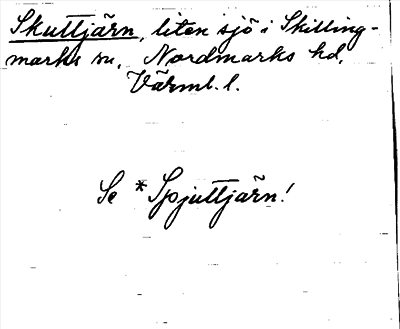 Skuttjärn, liten sjö i Skilling-
marks sn, Nordmarks hd,
Värml. l.
Se *Spjuttjärn!